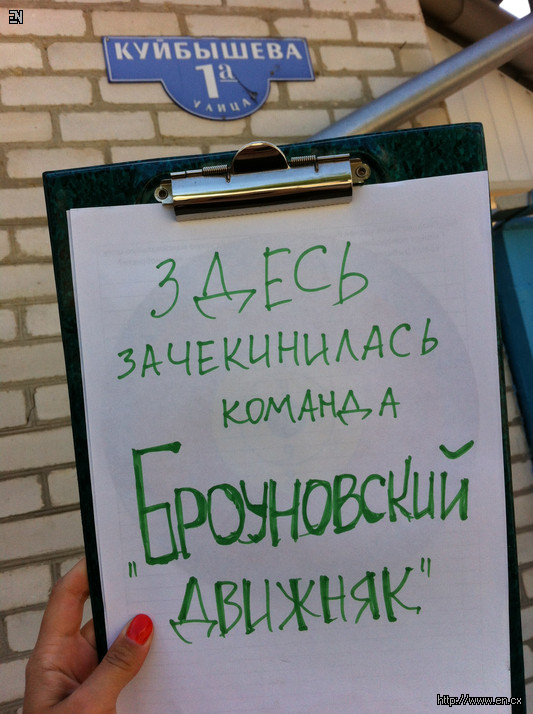 EN
КУЙБЫШЕВА
1а
УЛИЦА
ЗДЕСЬ
ЗАЧЕКИНИЛАСЬ
КОМАНДА
БРОУНОВСКИЙ
"ДВИЖНЯК"
http://www.en.cx